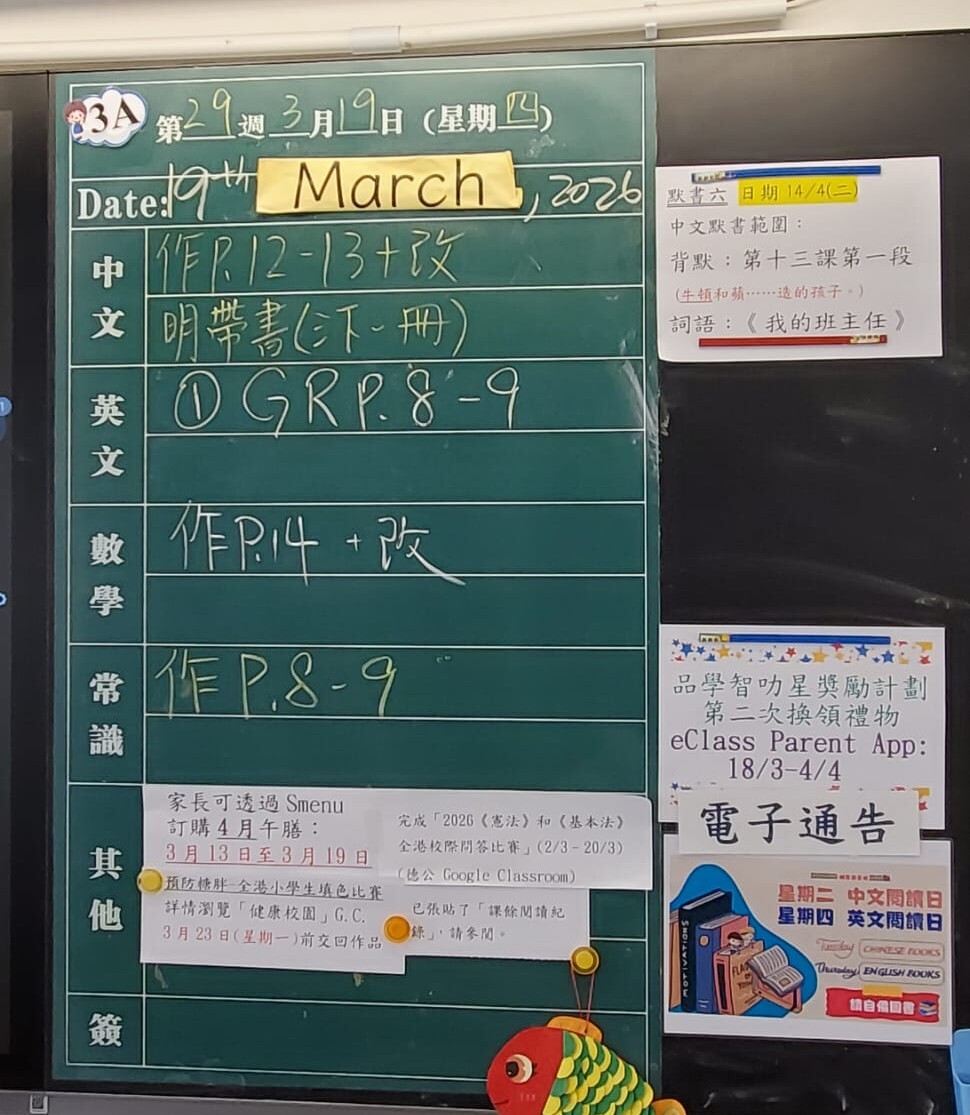 3A
第29週3月19日（星期四）
Date:19th March, 2026
中文
作P.12-13+改
明帶書(三下一冊)
英文
① GR P.8-9
數學
作P.14 +改
常識
作P.8-9
其他
家長可透過 Smenu
訂購4月午膳：
3月13日至3月19日
完成「2026《憲法》和《基本法》
全港校際問答比賽」(2/3-20/3)
(德公 Google Classroom)
預防糖胖-全港小學生填色比賽
詳情瀏覽「健康校園」G.C.
3月23日(星期一)前交回作品
已張貼了「課餘閱讀紀
錄」，請參閱。
簽
默書六 日期14/4(二)
中文默書範圍：
背默：第十三課第一段
(牛頓和蘋……造的孩子。)
詞語：《我的班主任》
品學智叻星獎勵計劃
第二次換領禮物
eClass Parent App:
18/3-4/4
電子通告
星期二 中文閱讀日
星期四 英文閱讀日
Tuesday CHINESE BOOKS
Thursday ENGLISH BOOKS
請自備圖書
MOTIVATIONS